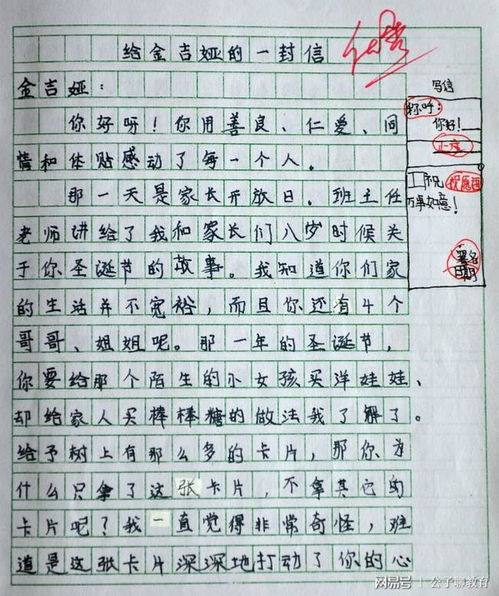 给金吉娅的一封信
金吉娅：
你好呀！你用善良、仁爱、同
情和体贴感动了每一个人。
那一天是家长开放日。班主任
老师讲给了我和家长们八岁时候关
于你圣诞节的故事。我知道你们家
的生活并不宽裕，而且你还有4个
哥哥、姐姐呢。那一年的圣诞节，
你要给那个陌生的小女孩买洋娃娃、
却给家人买棒棒糖的做法我了解了。
给予树上有那么多的卡片，那你为
什么只拿了这张卡片，不拿其它的
卡片呢？我一直觉得非常奇怪，难
道是这张卡片深深地打动了你的心
写信
称呼：
你好！
正文
祝愿语
万事如意！
署名
日期
网易号 | 公子聊教育